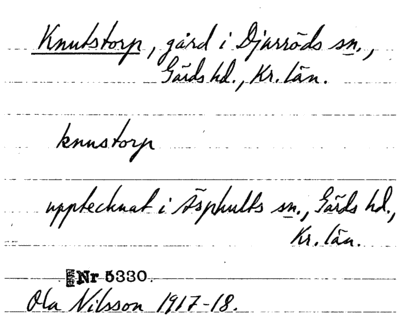 Knutstorp, gård i Djurröds sn.,
Gärds hd., Kr. län.
knustorp
upptecknat i Äsphults sn., Gärds hd.,
Kr. län.
Nr 5330.
Ola Nilsson 1917-18.